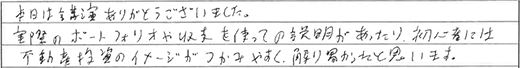 本日は講演ありがとうございました。
実際のポートフォリオや収支を使っての説明があったり、初心者には
不動産投資のイメージがつかみやすく、解り易かれと思います。